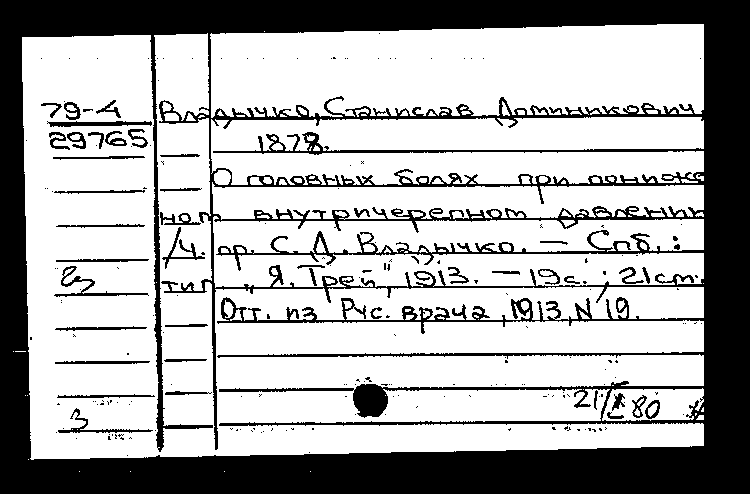 79-4 Владычко, Станислав Доминикович,
29765 1878.
О головных болях при пониже
ном внутричерепном давлении
/Ч. пр. С. Д. Владычко. — Спб. :
тип „Я. Трей", 1913. — 19 с. ; 21 см.
Отт. из Рус. врача, 1913, N 19.
21/I 80
3